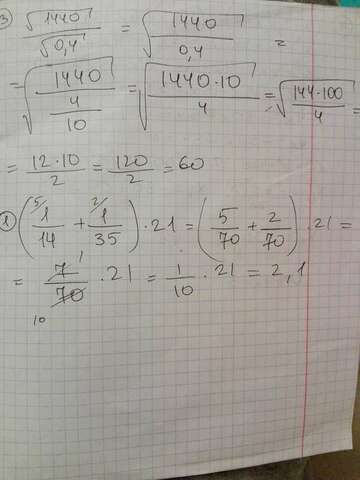 3) √1440 / √0,4 = √(1440 / 0,4) =
= √(1440 / (4/10)) = √(1440·10 / 4) = √(144·100 / 4) =
= 12·10 / 2 = 120 / 2 = 60
1) (⁵⁄1/14 + ²⁄1/35) · 21 = (5/70 + 2/70) · 21 =
= 7 1 / 70 10 · 21 = 1/10 · 21 = 2,1